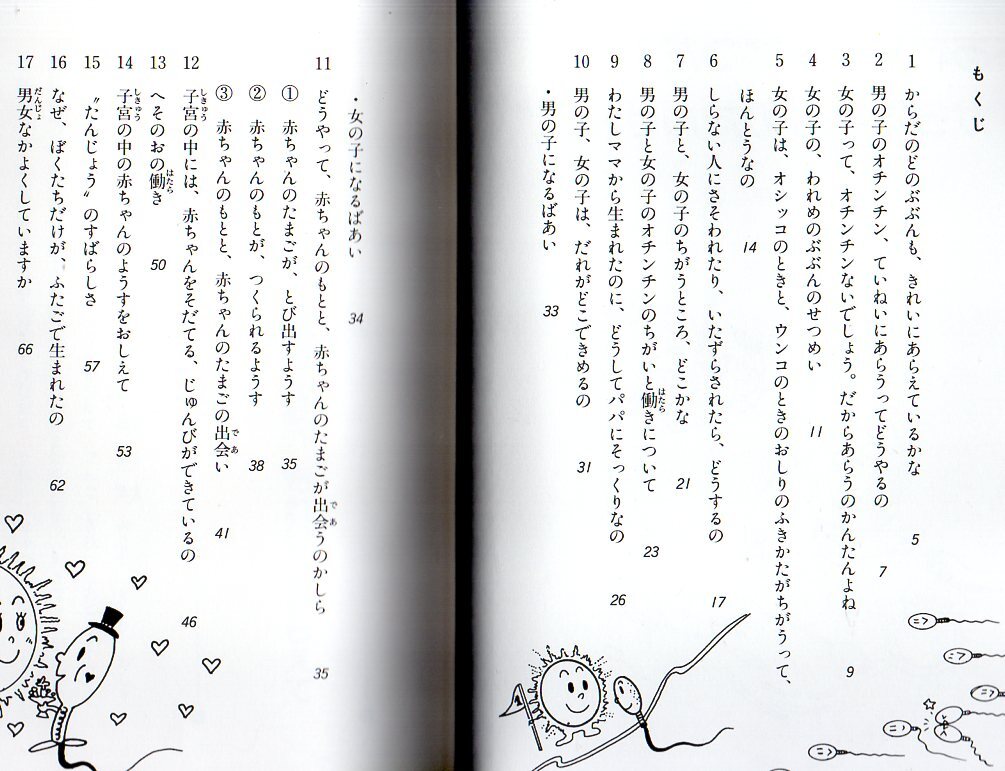 もくじ
1 からだのどのぶぶんも、きれいにあらえているかな 5
2 男の子のオチンチン、ていねいにあらうってどうやるの 7
3 女の子って、オチンチンないでしょう。だからあらうのかんたんよね 9
4 女の子の、われめのぶぶんのせつめい 11
5 女の子は、オシッコのときと、ウンコのときのおしりのふきかたがちがうって、
ほんとうなの 14
6 しらない人にさそわれたり、いたずらされたら、どうするの 17
7 男の子と、女の子のちがうところ、どこかな 21
8 男の子と女の子のオチンチンのちがいと働きについて 23
9 わたしママから生まれたのに、どうしてパパにそっくりなの 26
10 男の子、女の子は、だれがどこできめるの 31
・男の子になるばあい 33
・女の子になるばあい 34
11 どうやって、赤ちゃんのもとと、赤ちゃんのたまごが出会うのかしら 35
① 赤ちゃんのたまごが、とび出すようす 35
② 赤ちゃんのもとが、つくられるようす 38
③ 赤ちゃんのもとと、赤ちゃんのたまごの出会い 41
12 子宮の中には、赤ちゃんをそだてる、じゅんびができているの 46
13 へそのおの働き 50
14 子宮の中の赤ちゃんのようすをおしえて 53
15 〝たんじょう〟のすばらしさ 57
16 なぜ、ぼくたちだけが、ふたごで生まれたの 62
17 男女なかよくしていますか 66